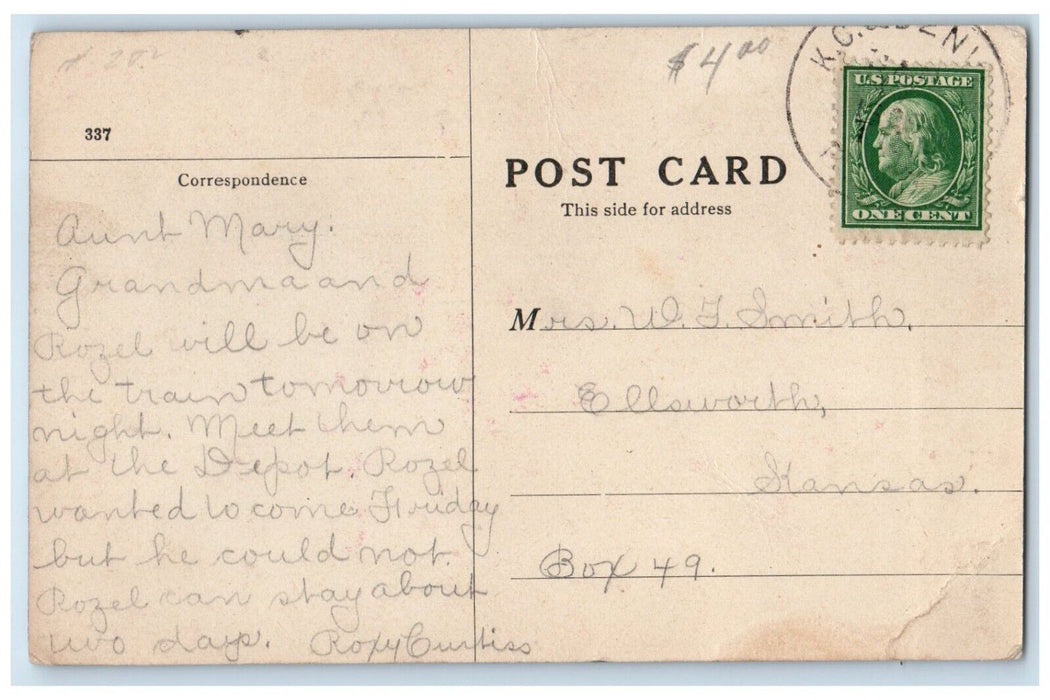 $4.00
K.C. & DEN
U.S. POSTAGE
ONE CENT
337
Correspondence
POST CARD
This side for address
Aunt Mary.
Grandma and
Rozel will be on
the train tomorrow
night. Meet them
at the Depot. Rozel
wanted to come Friday
but he could not.
Rozel can stay about
two days. Roxy Curtiss
Mrs. W. F. Smith,
Ellsworth,
Kansas.
Box 49.